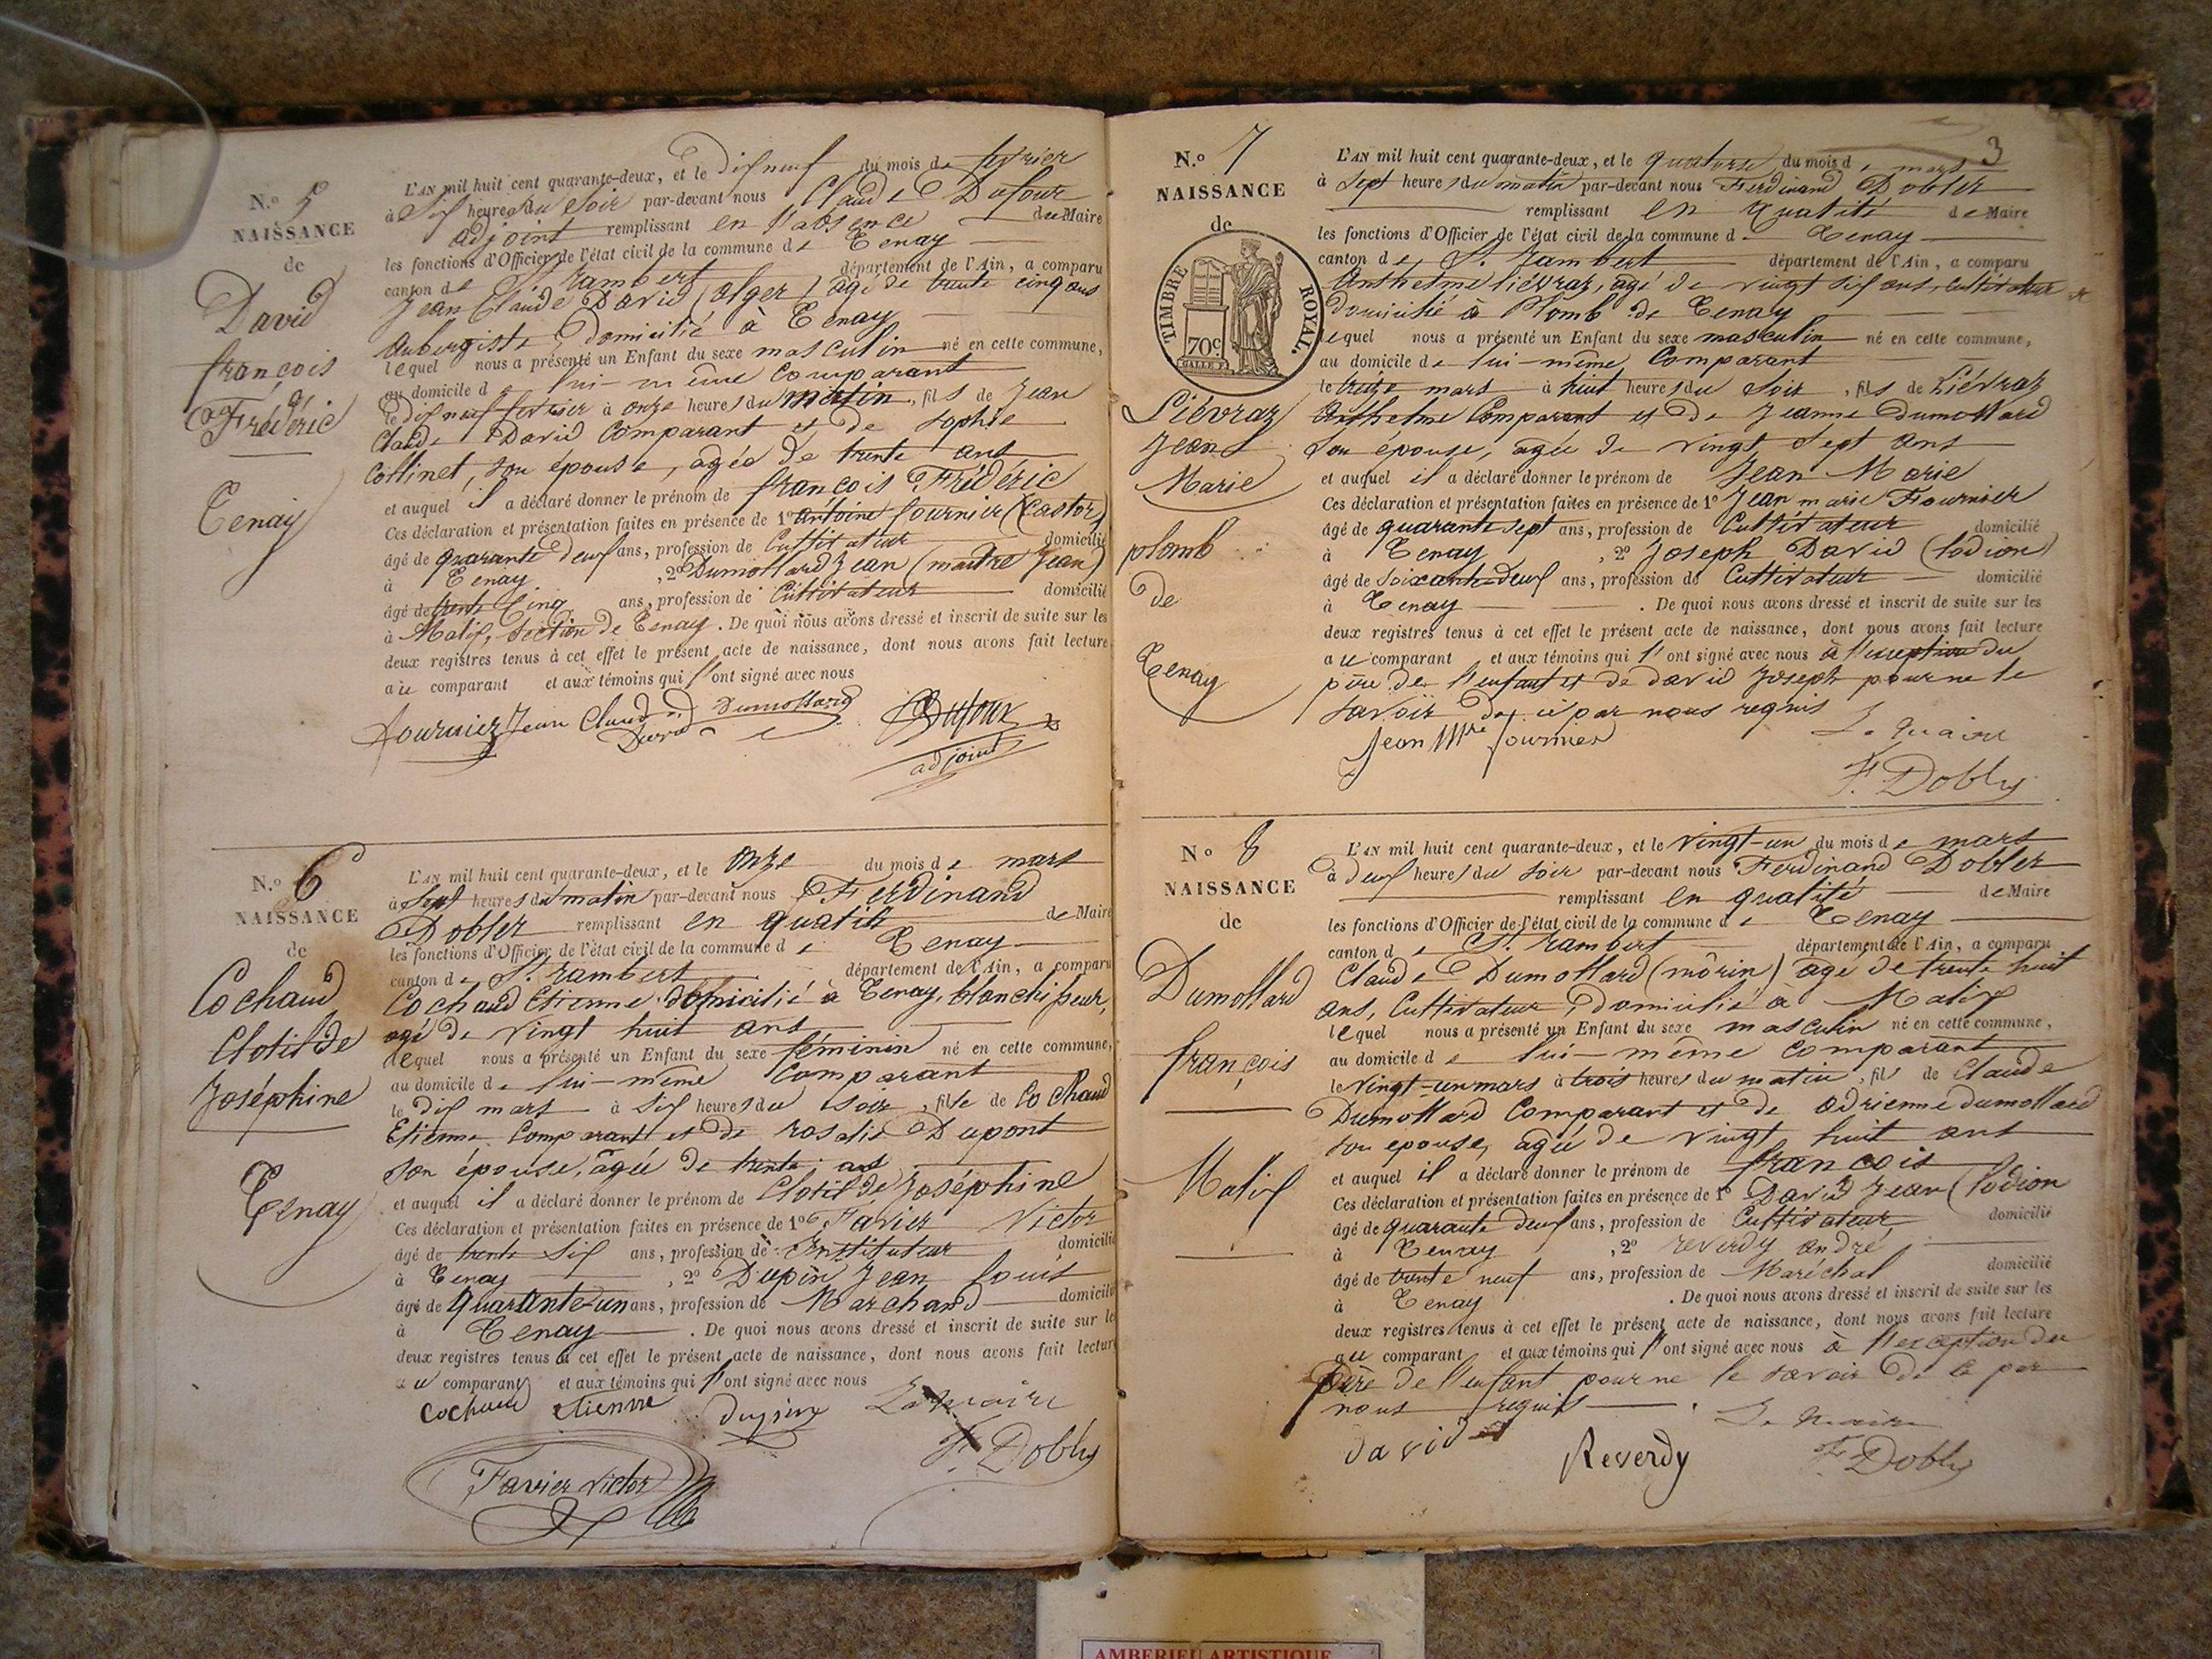 N.º 5
NAISSANCE
de
David
françois
Frédéric
Tenay
L'AN mil huit cent quarante-deux, et le Dix neuf du mois de fevrier
à Six heures du Soir par-devant nous Claude Dufour
adjoint remplissant en l'absence du Maire
les fonctions d'Officier de l'état civil de la commune de Tenay
canton de St. rambert département de l'Ain, a comparu
Jean Claude David (alger) agé de trente cinq ans
Aubergiste Domicilié à Tenay
lequel nous a présenté un Enfant du sexe masculin né en cette commune,
au domicile de lui-même Comparant
le dix neuf fevrier à onze heures du matin, fils de Jean
Claude David Comparant et de Sophie
Collinet, son épouse, agée de trente ans
et auquel il a déclaré donner le prénom de françois Frédéric
Ces déclaration et présentation faites en présence de 1º Antoine fournier (Castor)
âgé de quarante deux ans, profession de Cultivateur domicilié
à Tenay, 2º Dumollard Jean (maitre Jean)
âgé de trente Cinq ans, profession de Cultivateur domicilié
à Malix, Section de Tenay. De quoi nous avons dressé et inscrit de suite sur les
deux registres tenus à cet effet le présent acte de naissance, dont nous avons fait lecture
au comparant et aux témoins qui l'ont signé avec nous
fournier Jean Claude David Dumollard Dufour
adjoint
N.º 6
NAISSANCE
de
Cochaud
Clotilde
Joséphine
Tenay
L'AN mil huit cent quarante-deux, et le onze du mois de mars
à Sept heures du matin par-devant nous Ferdinand
Dobler remplissant en qualité de Maire
les fonctions d'Officier de l'état civil de la commune de Tenay
canton de St. rambert département de l'Ain, a comparu
Cochaud Etienne domicilié à Tenay, blanchisseur,
agé de vingt huit ans
lequel nous a présenté un Enfant du sexe féminin né en cette commune,
au domicile de lui-même Comparant
le dix mars à six heures du soir, fille de Cochaud
Etienne Comparant et de rosalie Dupont
Son épouse, agée de trente ans
et auquel il a déclaré donner le prénom de Clotilde Joséphine
Ces déclaration et présentation faites en présence de 1º Favier Victor
âgé de trente Six ans, profession de Instituteur domicilié
à Tenay, 2º Dupin Jean Louis
âgé de quarante-un ans, profession de Marchand domicilié
à Tenay. De quoi nous avons dressé et inscrit de suite sur les
deux registres tenus à cet effet le présent acte de naissance, dont nous avons fait lecture
au comparant et aux témoins qui l'ont signé avec nous
Cochaud etienne Le maire
F. Dobler
Favier victor
3
N.º 7
NAISSANCE
de
TIMBRE ROYAL.
70c
Liévraz
Jean
Marie
plomb
de
Tenay
L'AN mil huit cent quarante-deux, et le quatorze du mois de mars
à Sept heures du matin par-devant nous Ferdinand Dobler
remplissant en qualité de Maire
les fonctions d'Officier de l'état civil de la commune de Tenay
canton de St. rambert département de l'Ain, a comparu
Anthelme Liévraz, agé de vingt six ans, cultivateur
domicilié à Plomb de Tenay
lequel nous a présenté un Enfant du sexe masculin né en cette commune,
au domicile de lui-même Comparant
le treize mars à huit heures du Soir, fils de Liévraz
Anthelme Comparant et de Jeanne Dumollard
Son épouse, agée de vingt Sept ans
et auquel il a déclaré donner le prénom de Jean Marie
Ces déclaration et présentation faites en présence de 1º Jean marie Fournier
âgé de quarante sept ans, profession de Cultivateur domicilié
à Tenay, 2º Joseph David (Codion)
âgé de soixante deux ans, profession de Cultivateur domicilié
à Tenay. De quoi nous avons dressé et inscrit de suite sur les
deux registres tenus à cet effet le présent acte de naissance, dont nous avons fait lecture
au comparant et aux témoins qui l'ont signé avec nous à l'exception du
père de l'enfant et de david Joseph pour ne le
savoir de ce par nous requis
Jean Mrie fournier Le maire
F. Dobler
Nº 8
NAISSANCE
de
Dumollard
françois
Malix
L'AN mil huit cent quarante-deux, et le vingt-un du mois de mars
à deux heures du soir par-devant nous Ferdinand Dobler
remplissant en qualité de Maire
les fonctions d'Officier de l'état civil de la commune de Tenay
canton de St. rambert département de l'Ain, a comparu
Claude Dumollard (môrin) agé de trente huit
ans, Cultivateur, Domicilié à Malix
lequel nous a présenté un Enfant du sexe masculin né en cette commune,
au domicile de lui-même comparant
le vingt-un mars à trois heures du matin, fils de Claude
Dumollard Comparant et de adrienne dumollard
son epouse, agée de vingt huit ans
et auquel il a déclaré donner le prénom de françois
Ces déclaration et présentation faites en présence de 1º David Jean (Codion
âgé de quarante deux ans, profession de Cultivateur domicilié
à Tenay, 2º reverdy andré
âgé de trente neuf ans, profession de Maréchal domicilié
à Tenay. De quoi nous avons dressé et inscrit de suite sur les
deux registres tenus à cet effet le présent acte de naissance, dont nous avons fait lecture
au comparant et aux témoins qui l'ont signé avec nous à l'exception du
père de l'enfant pour ne le savoir de ce par
nous requis.
david Reverdy Le maire
F. Dobler
AMBERIEU ARTISTIQUE